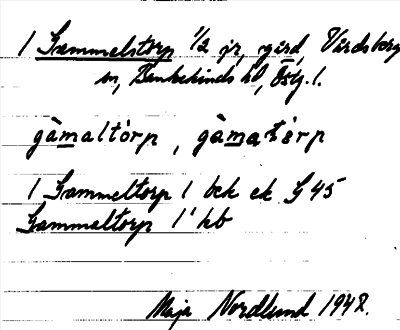 1 Gammelstorp 1/2 jr, gård, Vårdsberg
sn, Bankekinds hd, Östg. l.
gàmaltòrp, gàmatòrp
1 Gammeltorp 1 bek ek G 45
Gammaltorp 1' kb
Maja Nordlund 1948.